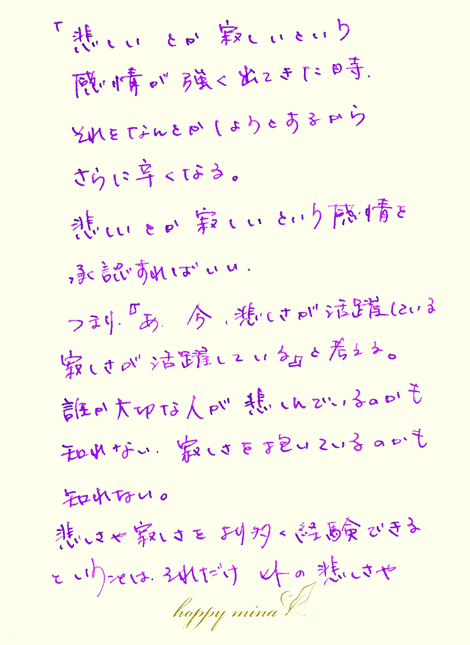 「悲しいとか寂しいという
感情が強く出てきた時.
それをなんとかしようとするから
さらに辛くなる。
悲しいとか寂しいという感情を
承認すればいい.
つまり.『あ.今、悲しさが活躍している
寂しさが活躍している』と考える。
誰か大切な人が悲しんでいるのかも
知れない.寂しさを抱いているのかも
知れない。
悲しさや寂しさをより多く経験できる
ということは.それだけ人の悲しさや
happy mina